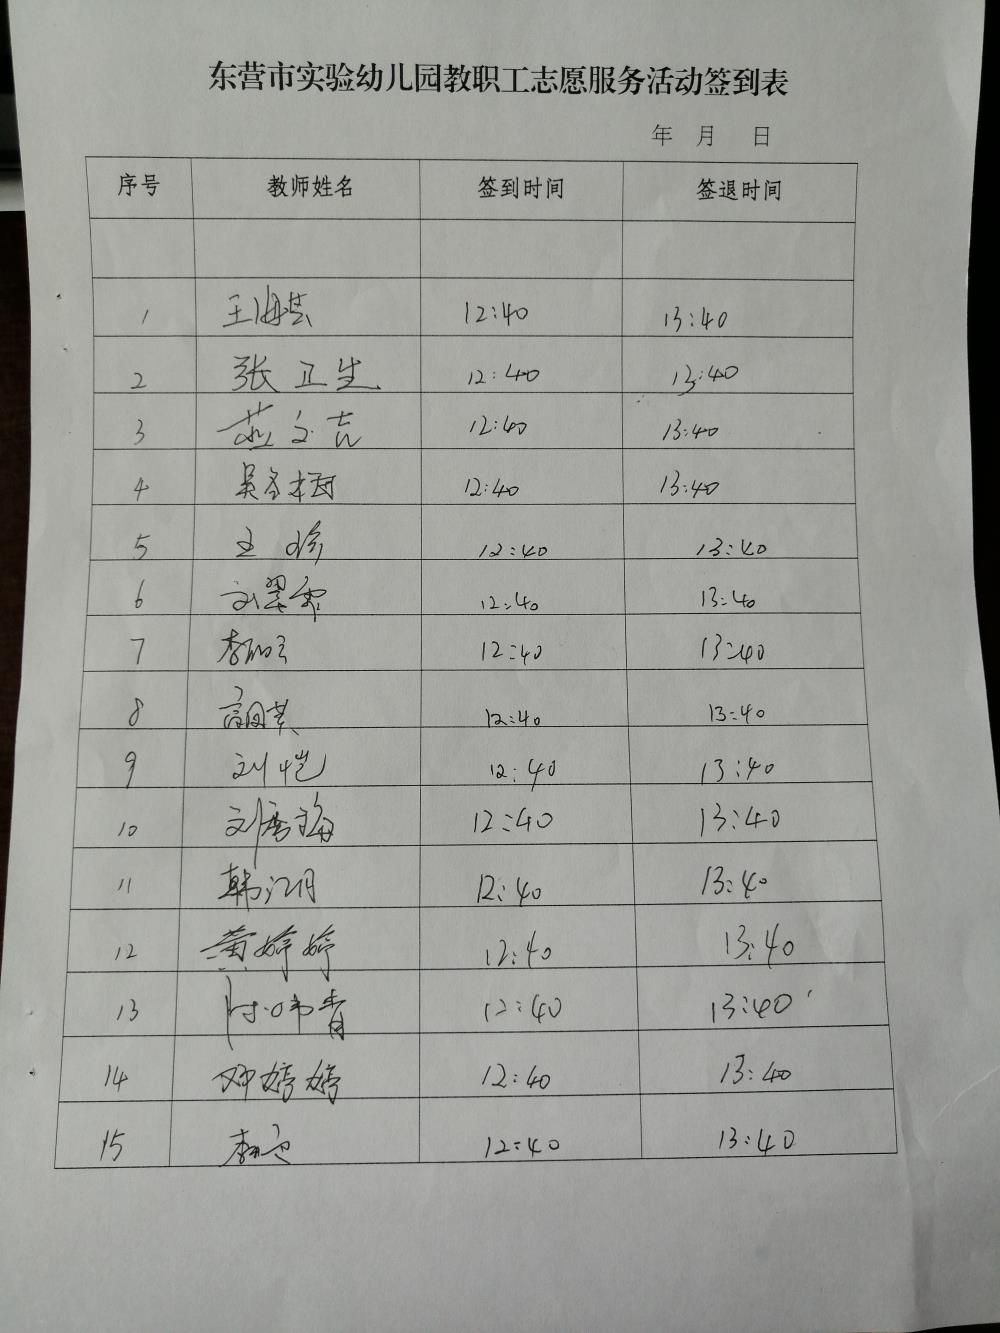 东营市实验幼儿园教职工志愿服务活动签到表
年 月 日
序号 教师姓名 签到时间 签退时间
1 王海芸 12:40 13:40
2 张卫生 12:40 13:40
3 12:40 13:40
4 吴 12:40 13:40
5 王 12:40 13:40
6 刘翠霖 12:40 13:40
7 李 12:40 13:40
8 高 12:40 13:40
9 刘恺 12:40 13:40
10 刘秀梅 12:40 13:40
11 韩江月 12:40 13:40
12 黄婷婷 12:40 13:40
13 青 12:40 13:40
14 邓婷婷 12:40 13:40
15 李 12:40 13:40